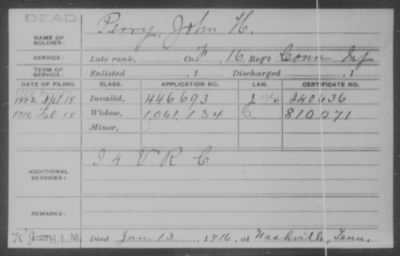 DEAD
NAME OF SOLDIER: Perry, John H.
SERVICE: Late rank, Co. F, 16 Reg't Conn Inf
TERM OF SERVICE: Enlisted , 1 Discharged , 1
DATE OF FILING. CLASS. APPLICATION NO. LAW. CERTIFICATE NO.
Invalid, 446693
1916 Feb. 18 Widow, 1,061,134 810271
Minor,
ADDITIONAL SERVICES: I 4 V R C
REMARKS:
Died Jan. 13, 1916, at Nashville, Tenn.